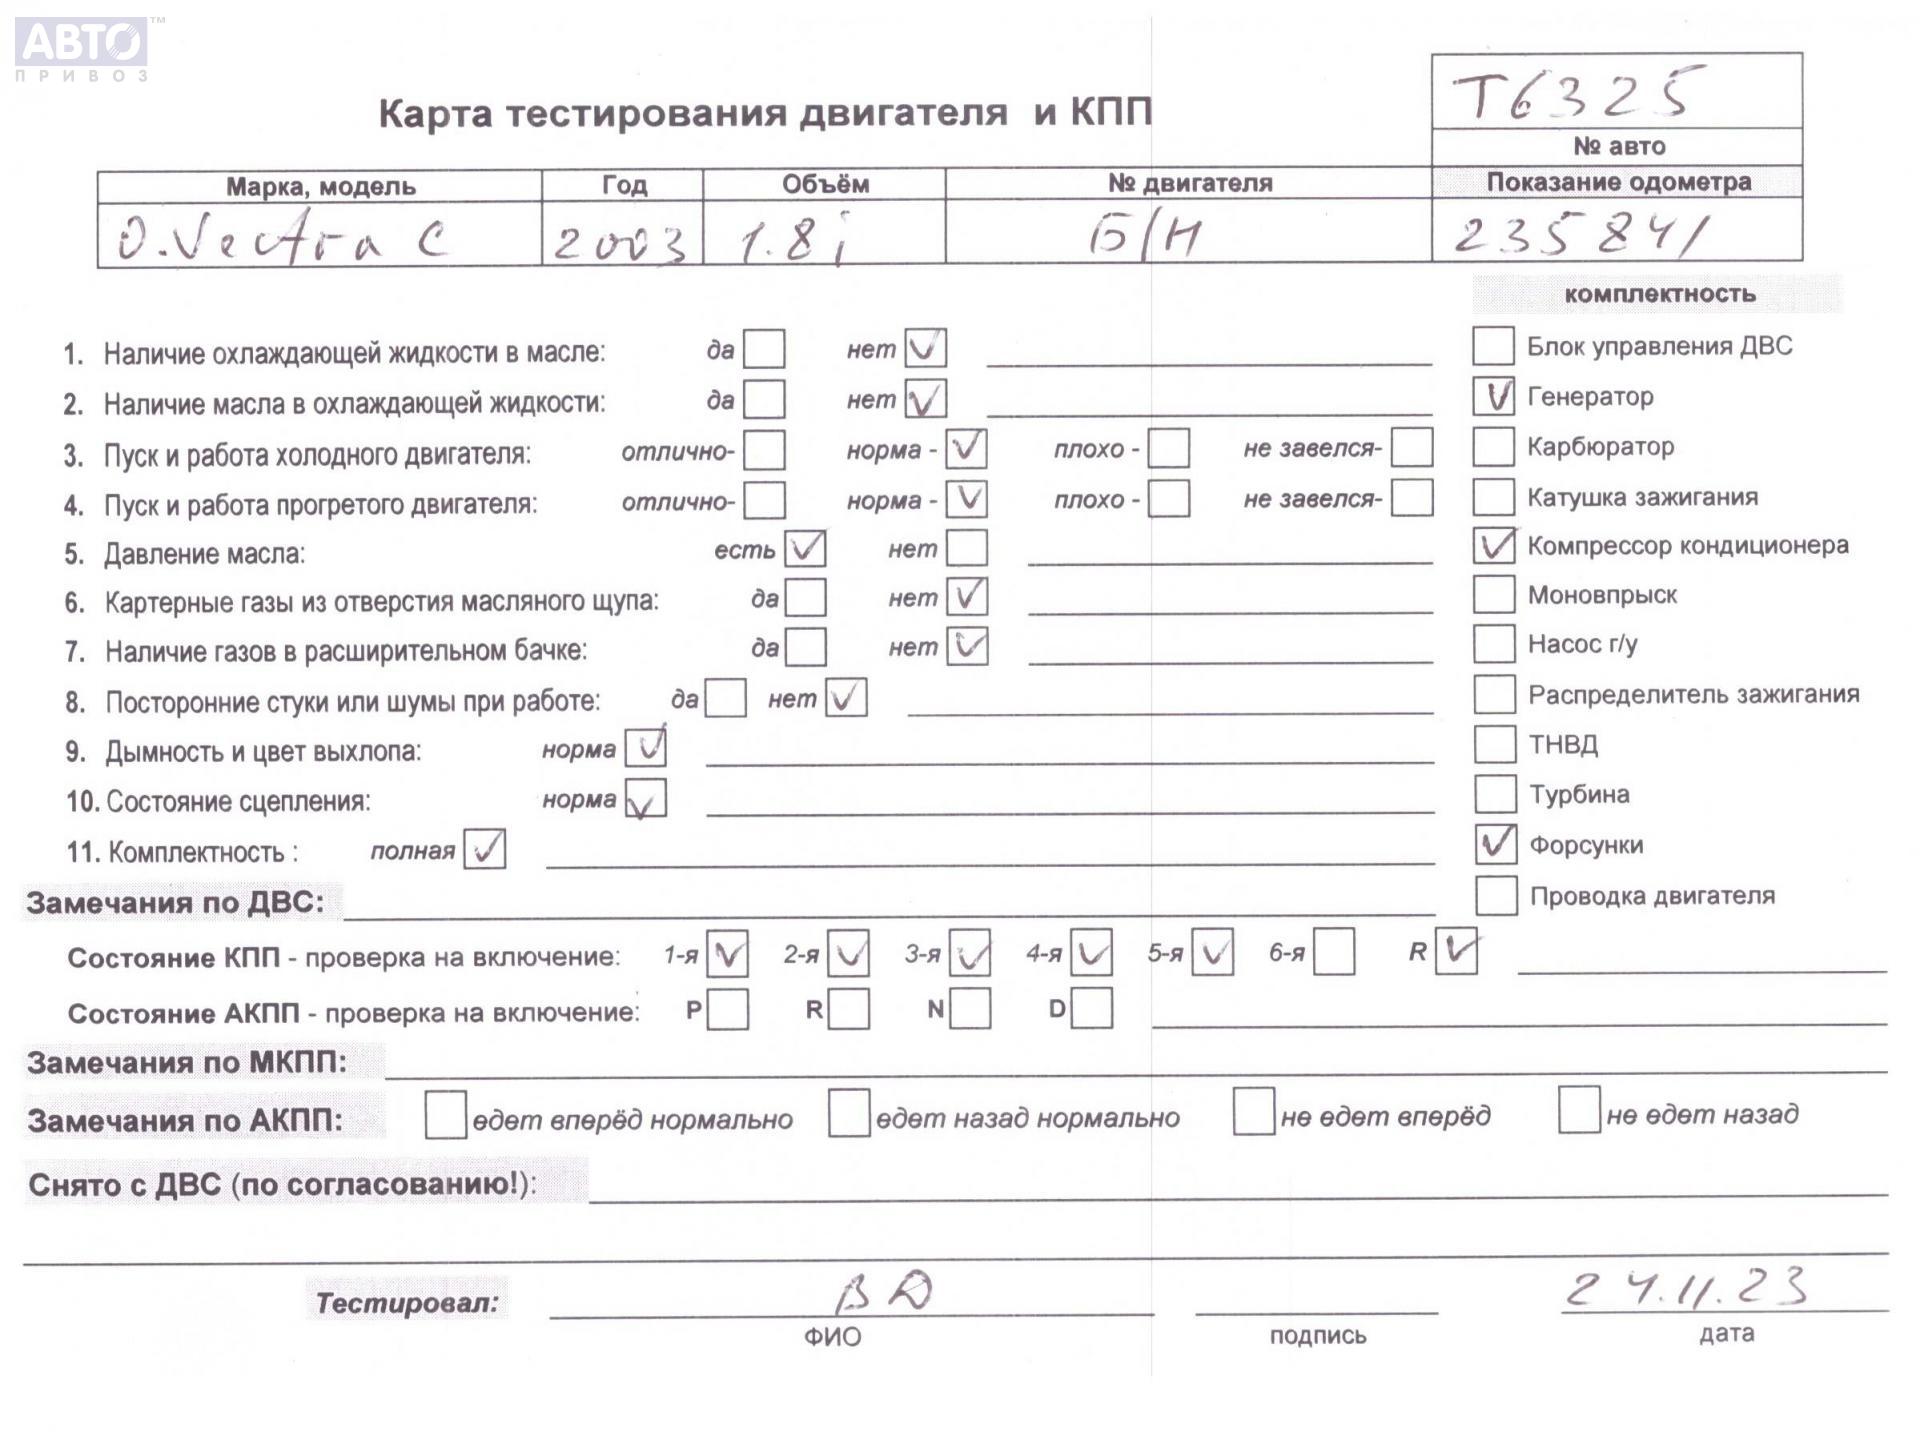 АВТО™
ПРИВОЗ
Т6325
Карта тестирования двигателя и КПП
№ авто
Марка, модель Год Объём № двигателя Показание одометра
O.Vectra C 2003 1.8i Б/Н 235841
комплектность
1. Наличие охлаждающей жидкости в масле: да нет ✓ Блок управления ДВС
2. Наличие масла в охлаждающей жидкости: да нет ✓ ✓ Генератор
3. Пуск и работа холодного двигателя: отлично- норма - ✓ плохо - не завелся- Карбюратор
4. Пуск и работа прогретого двигателя: отлично- норма - ✓ плохо - не завелся- Катушка зажигания
5. Давление масла: есть ✓ нет ✓ Компрессор кондиционера
6. Картерные газы из отверстия масляного щупа: да нет ✓ Моновпрыск
7. Наличие газов в расширительном бачке: да нет ✓ Насос г/у
8. Посторонние стуки или шумы при работе: да нет ✓ Распределитель зажигания
9. Дымность и цвет выхлопа: норма ✓ ТНВД
10. Состояние сцепления: норма ✓ Турбина
11. Комплектность : полная ✓ ✓ Форсунки
Замечания по ДВС: Проводка двигателя
Состояние КПП - проверка на включение: 1-я ✓ 2-я ✓ 3-я ✓ 4-я ✓ 5-я ✓ 6-я R ✓
Состояние АКПП - проверка на включение: P R N D
Замечания по МКПП:
Замечания по АКПП: едет вперёд нормально едет назад нормально не едет вперёд не едет назад
Снято с ДВС (по согласованию!):
Тестировал: ВД 24.11.23
ФИО подпись дата